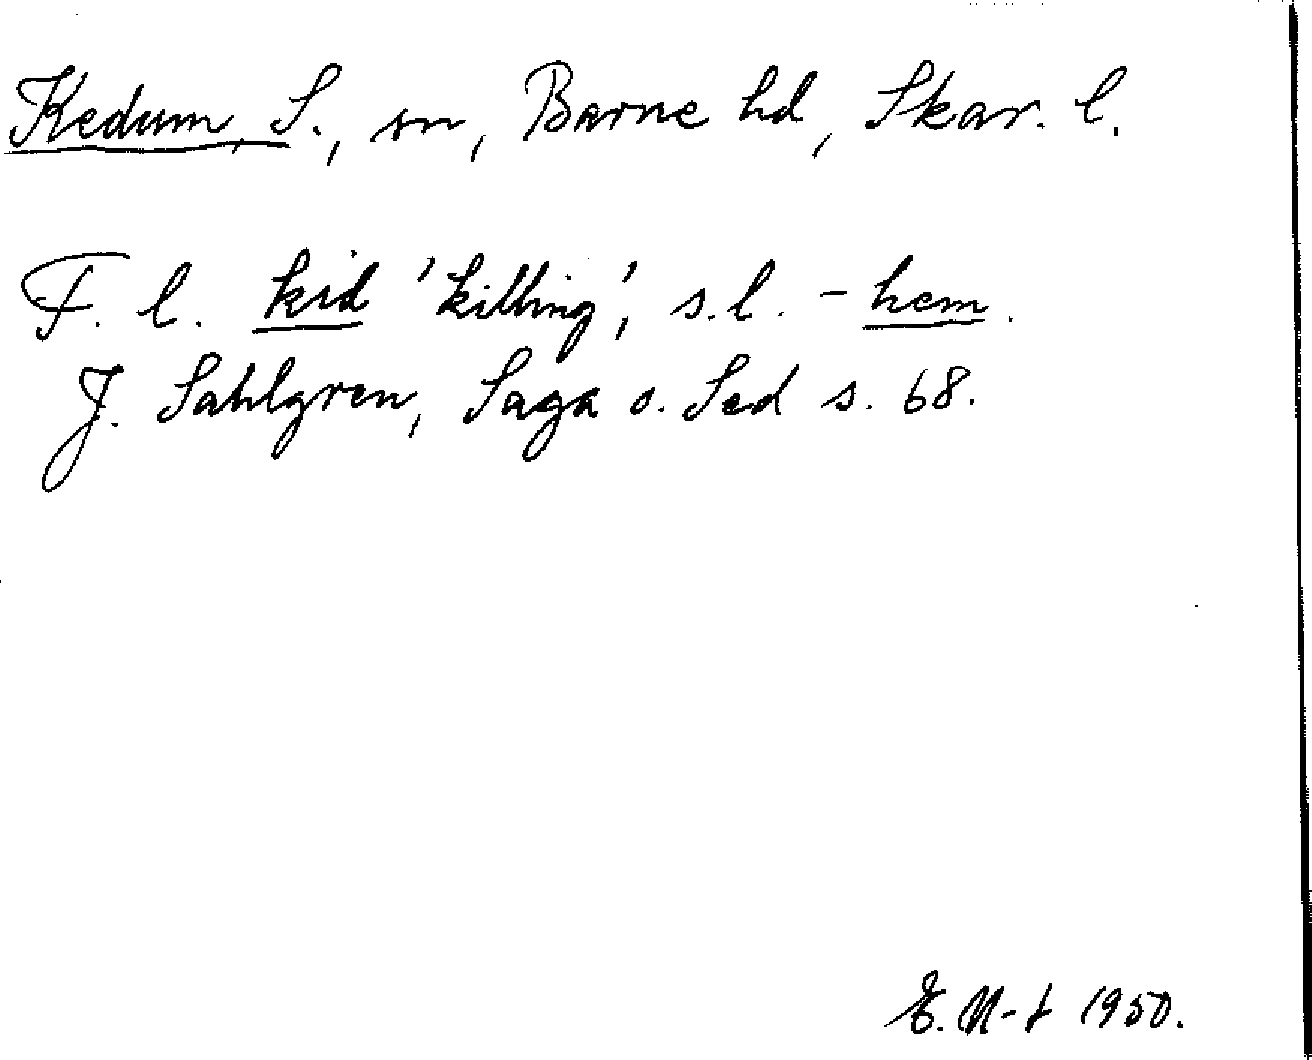 Kedum, S., sn, Barne hd, Skar. l.
F. l. kid 'killing', s.l. -hem.
J. Sahlgren, Saga o. Sed s. 68.
E. N-t 1950.